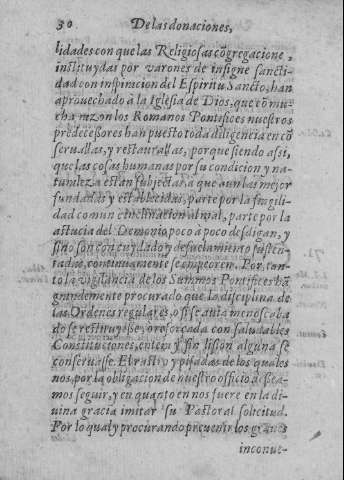 30 De las donaciones,
lidades con que las Religiosas cõgregacione,
instituydas por varones de insigne sancti-
dad con inspiracion del Espiritu Sancto, han
aprouechado à la Iglesia de Dios, que cõ mu-
cha razon los Romanos Pontifices nuestros
predecessores han puesto toda diligencia en cõ
seruallas, y restaurallas, porque siendo assi,
que las cosas humanas por su condicion y na-
turaleza estan subjectas, a que aun las mejor
fundadas y establecidas, parte por la fragili-
dad comun è inclinacion al mal, parte por la
astucia del Demonio poco à poco desdigan, y
sino son con cuydado y desuelamiento susten-
tadas, continuamente se empeoren. Por tan-
to la vigilancia de los Summos Pontifices ha
grandemente procurado que la disciplina de
las Ordenes regulares, o si se auia menosca
do se restituyesse, o reforçada con saludables
Constituciones, entera y sin lision alguna se
conseruasse. El rastro y pisadas de los quales
nos, por la obligacion de nuestro officio, dessea-
mos seguir, y en quanto en nos fuere en la di-
uina gracia imitar su Pastoral solicitud.
Por lo qual y procurando preuenir los graues
inconue-